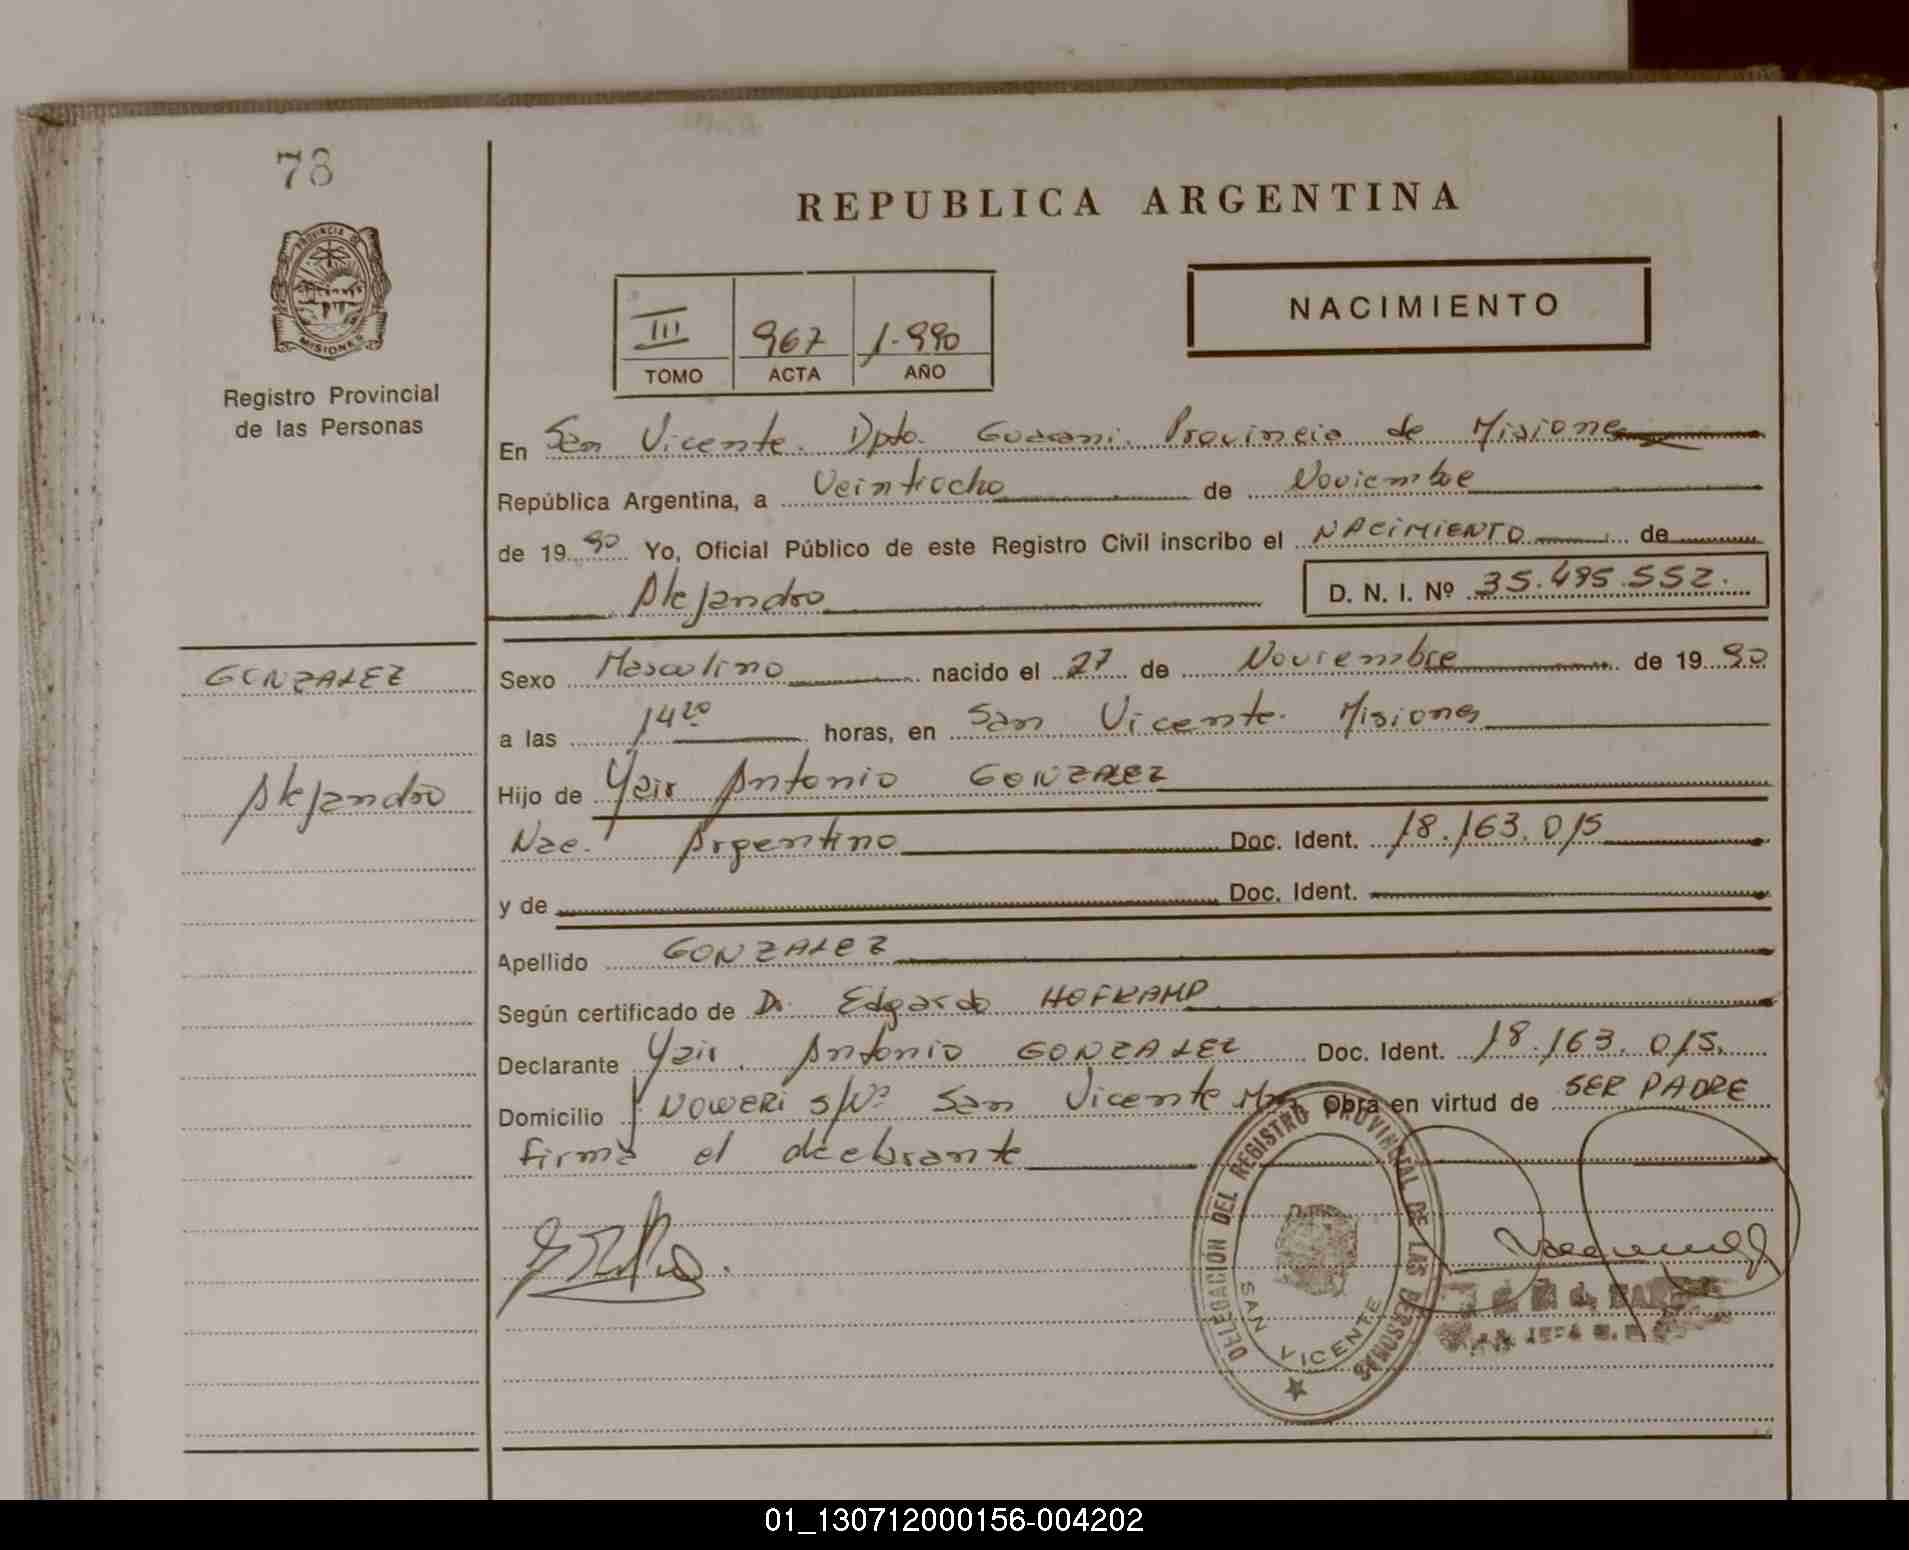 78
PROVINCIA DE
MISIONES
Registro Provincial
de las Personas
GONZALEZ
Alejandro
REPUBLICA ARGENTINA
III 967 1.990
TOMO ACTA AÑO
NACIMIENTO
En San Vicente. Dpto. Guarani. Provincia de Misiones
República Argentina, a Veintiocho de Noviembre
de 1990 Yo, Oficial Público de este Registro Civil inscribo el NACIMIENTO de
Alejandro D. N. I. Nº 35.495.552.
Sexo Masculino nacido el 27 de Noviembre de 1990
a las 14 20 horas, en San Vicente. Misiones
Hijo de Yair Antonio GONZALEZ
Nac. Argentino Doc. Ident. 18.163.015
y de Doc. Ident.
Apellido GONZALEZ
Según certificado de Dr. Edgardo HOFKAMP
Declarante Yair Antonio GONZALEZ Doc. Ident. 18.163.015.
Domicilio NOWERI S/Nº San Vicente Mnes Obra en virtud de SER PADRE
firma el declarante
DELEGACIÓN DEL REGISTRO PROVINCIAL DE LAS PERSONAS
SAN VICENTE
01_130712000156-004202